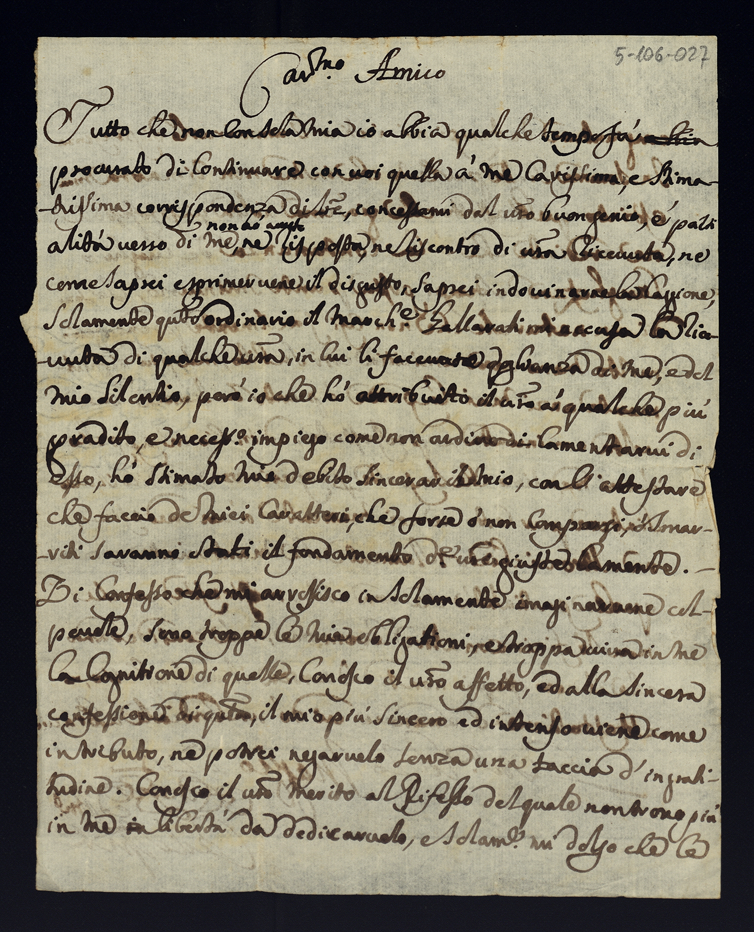 5-106-027
Car.mo Amico
Tutto che non con sola mia io abbia qualche tempo fà
procurato di continuare con voi quella à me Carissima, e stima-
-tissima corrispondenza di lre, concessami dal vro buon genio, e parti
non hò avuto
alità verso di me, ne risposta, ne riscontro di vra ricevuta, ne
come saprei esprimervene il disgusto, saprei indovinarne la cagione,
solamente qto ordinario il March.e Gallarati mi accusa la rice-
-vuta di qualche vra, in cui li facevate doglianza di me, e del
mio silentio, però io che hò attribuito il vro à qualche più
gradito, e necess.o impiego come non ardivo di lamentarvi di
esso, hò stimato mio debito sincerar il mio, con li attestare
che faccio de miei Caratteri, che forse ò non comparsi, ò smar-
-riti saranno stati il fondamento de vre giuste lamente. -
Vi Confesso che mi arrossisco in solamente imaginarvene col-
pevole, sono troppe le mie obligationi, e troppa viva in me
la Cognitione di quelle, Conosco il vro affetto, ed alla sincera
confessione di qto, il mio più sincero ed intenso viene come
in tributo, ne potrei negarvelo senza una taccia d'ingrati-
tudine. Conosco il vro merito al riflesso del quale non trovo più
in me in libertà da dedicarvelo, e solam.te mi dolgo che le